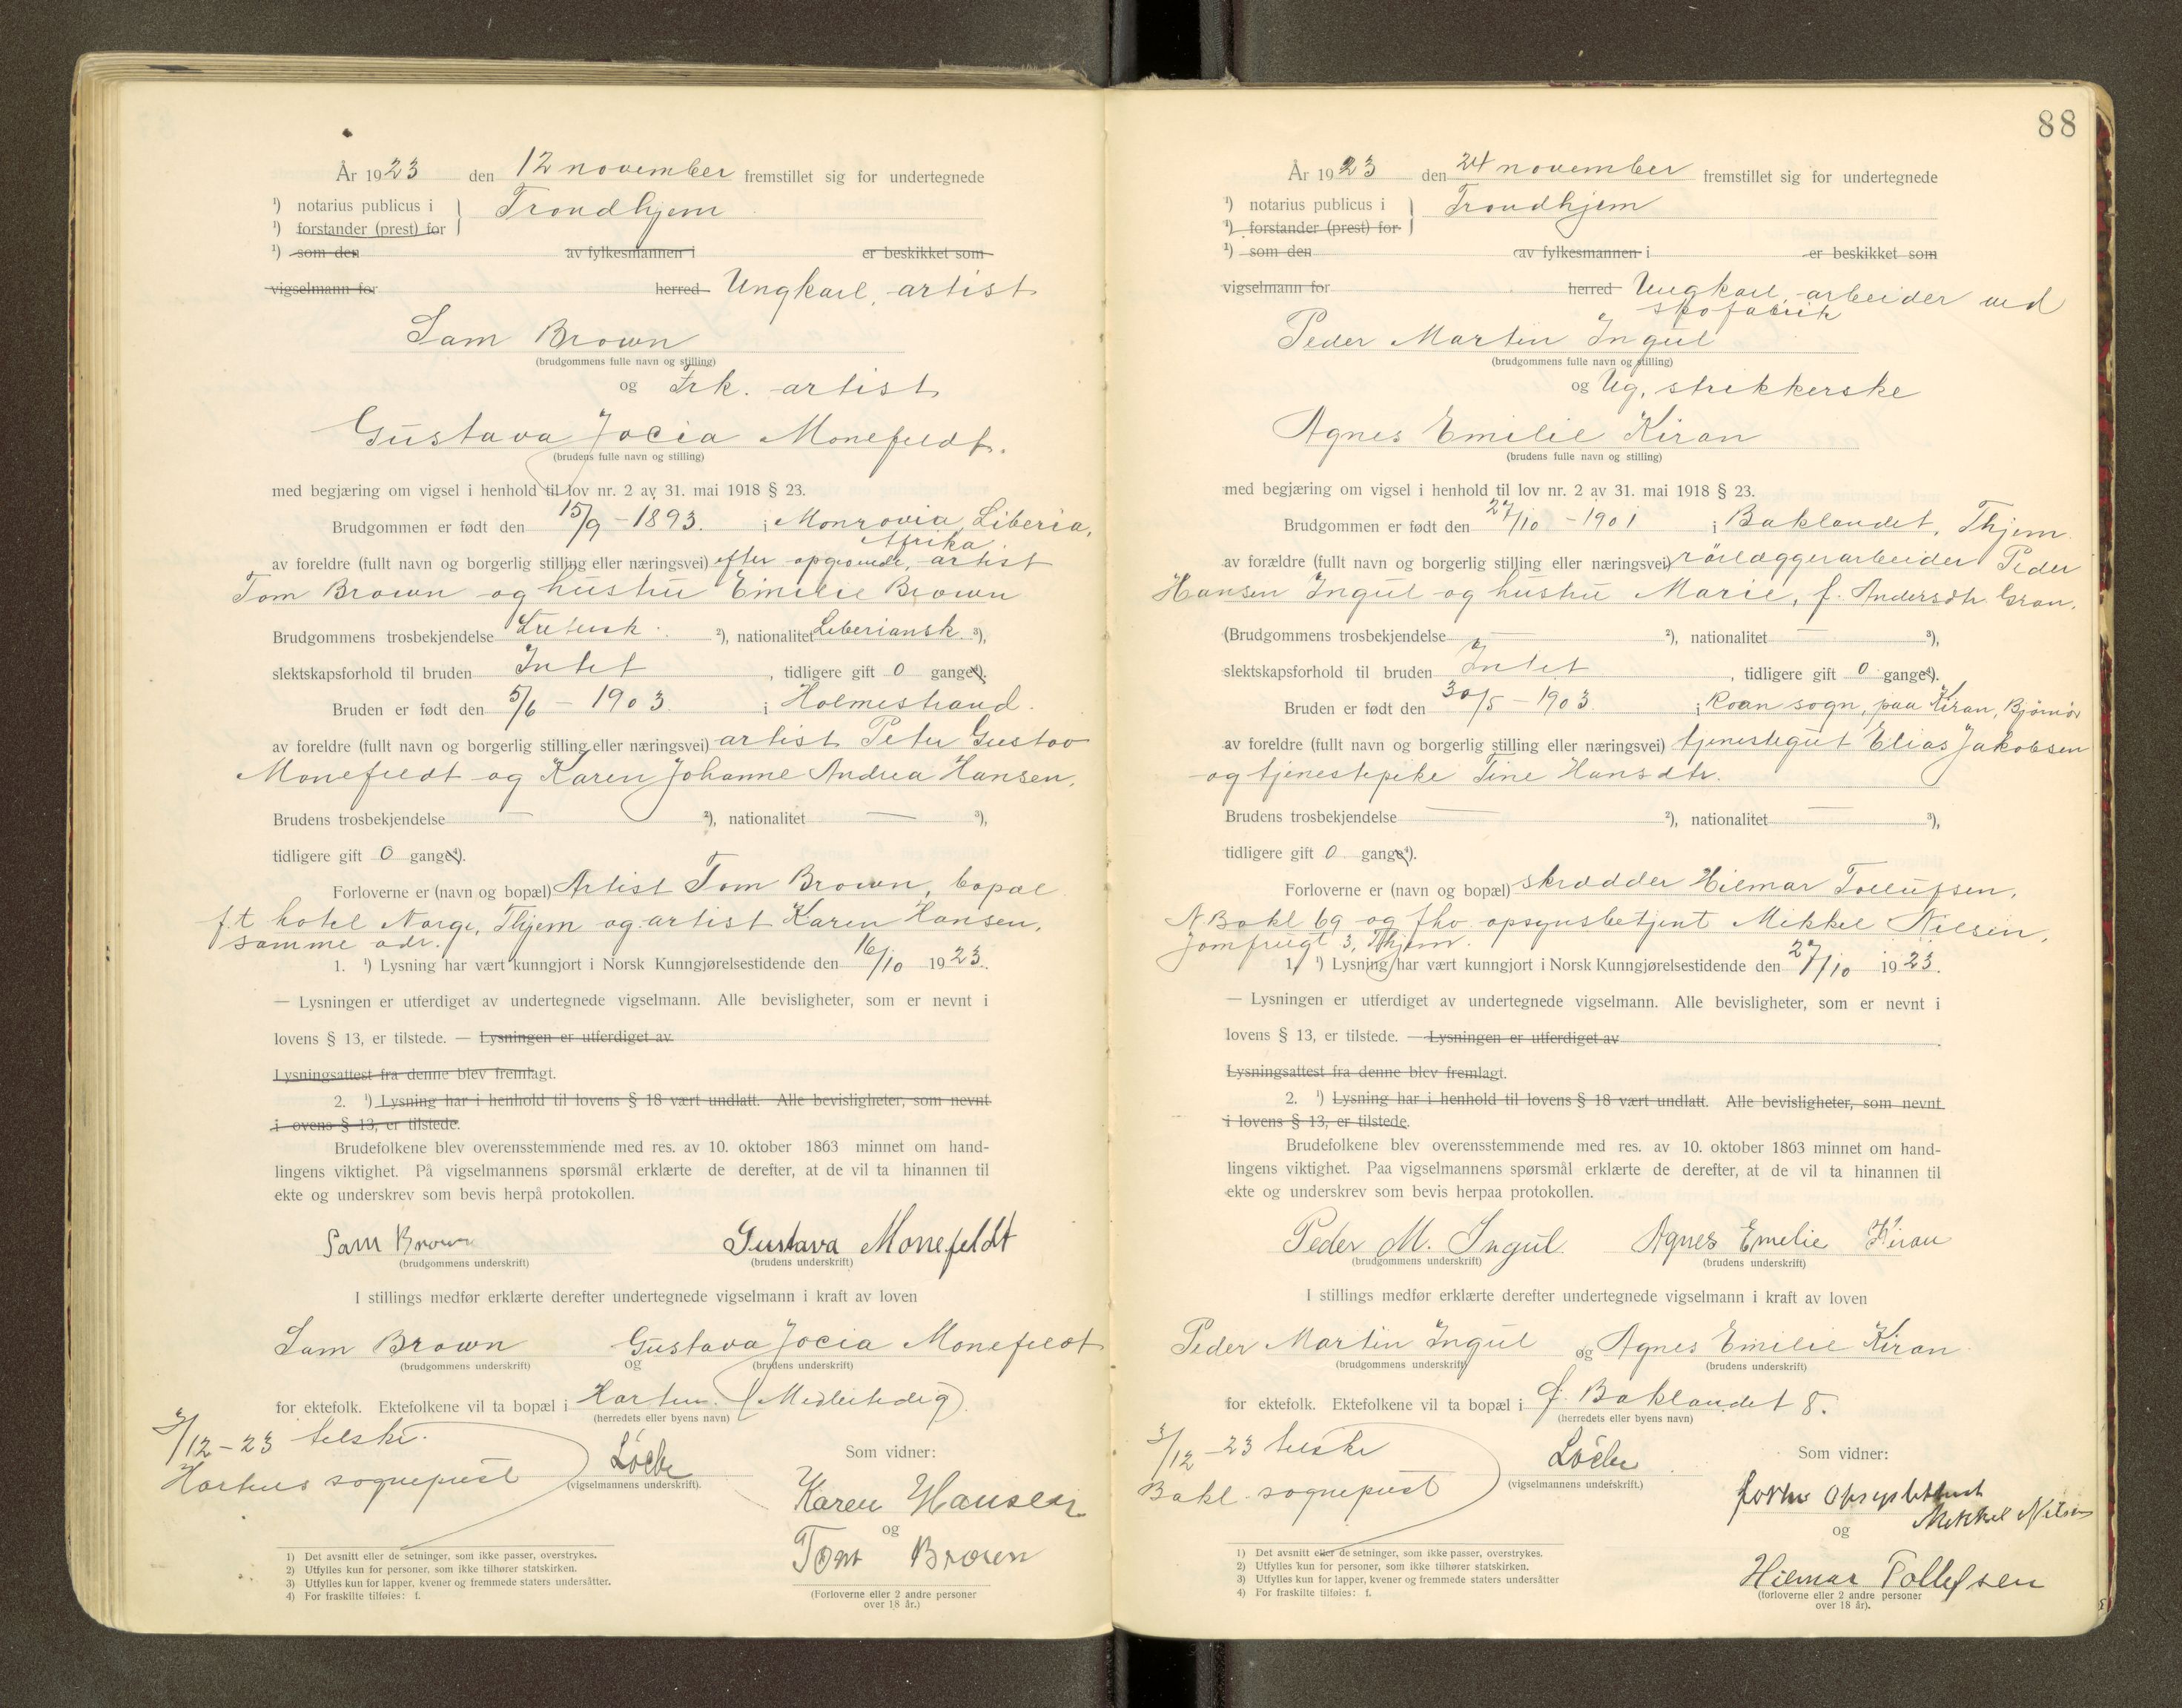 År 1923 den 12 november fremstillet sig for undertegnede
¹) notarius publicus i } Trondhjem
¹) forstander (prest) for
¹) som den av fylkesmannen i er beskikket som
vigselmann for herred Ungkarl, artist
Sam Brown
(brudgommens fulle navn og stilling)
og Frk. artist
Gustava Jocia Monefeldt.
(brudens fulle navn og stilling)
med begjæring om vigsel i henhold til lov nr. 2 av 31. mai 1918 § 23.
Brudgommen er født den 15/9 - 1893. i Monrovia, Liberia,
Afrika
av foreldre (fullt navn og borgerlig stilling eller næringsvei) efter opgivende, artist
Tom Brown og hustru Emilie Brown
Brudgommens trosbekjendelse Luthersk ²), nationalitet Liberiansk ³),
slektskapsforhold til bruden Intet, tidligere gift 0 gange⁴).
Bruden er født den 5/6 - 1903. i Holmestrand.
av foreldre (fullt navn og borgerlig stilling eller næringsvei) artist Peter Gustav
Monefeldt og Karen Johanne Andrea Hansen.
Brudens trosbekjendelse — ²), nationalitet — ³),
tidligere gift 0 gange⁴).
Forloverne er (navn og bopæl) Artist Tom Brown, bopæl
f.t. hotel Norge, Thjem og artist Karen Hansen,
samme adr.
1. ¹) Lysning har vært kunngjort i Norsk Kunngjørelsestidende den 16/10 1923.
— Lysningen er utferdiget av undertegnede vigselmann. Alle bevisligheter, som er nevnt i
lovens § 13, er tilstede. — Lysningen er utferdiget av
Lysningsattest fra denne blev fremlagt.
2. ¹) Lysning har i henhold til lovens § 18 vært undlatt. Alle bevisligheter, som nevnt
i ovens § 13, er tilstede.
Brudefolkene blev overensstemmende med res. av 10. oktober 1863 minnet om hand-
lingens viktighet. På vigselmannens spørsmål erklærte de derefter, at de vil ta hinannen til
ekte og underskrev som bevis herpå protokollen.
Sam Brown Gustava Monefeldt
(brudgommens underskrift) (brudens underskrift)
I stillings medfør erklærte derefter undertegnede vigselmann i kraft av loven
Sam Brown og Gustava Jocia Monefeldt
(brudgommens underskrift) (brudens underskrift)
for ektefolk. Ektefolkene vil ta bopæl i (Midlertidig)
(herredets eller byens navn)
/12 - 23
sogneprest
Löchr
(vigselmannens underskrift).
Som vidner:
Karen Hansen
og
Tom Brown
(Forloverne eller 2 andre personer
over 18 år.)
1) Det avsnitt eller de setninger, som ikke passer, overstrykes.
2) Utfylles kun for personer, som ikke tilhører statskirken.
3) Utfylles kun for lapper, kvener og fremmede staters undersåtter.
4) For fraskilte tilføies: f.
88
År 1923 den 24 november fremstillet sig for undertegnede
¹) notarius publicus i } Trondhjem
¹) forstander (prest) for
¹) som den av fylkesmannen i er beskikket som
vigselmann for herred Ungkarl, arbeider ved
skofabrik
Peder Martin Ingul
(brudgommens fulle navn og stilling)
og Ug. strikkerske
Agnes Emilie Kiran
(brudens fulle navn og stilling)
med begjæring om vigsel i henhold til lov nr. 2 av 31. mai 1918 § 23.
Brudgommen er født den 27/10 - 1901 i Baklandet, Thjem
av forældre (fullt navn og borgerlig stilling eller næringsvei) rörlæggerarbeider Peder
Hansen Ingul og hustru Marie, f. Andersdtr. Gran.
(Brudgommens trosbekjendelse — ²), nationalitet — ³),
slektskapsforhold til bruden Intet, tidligere gift 0 gange⁴).
Bruden er født den 30/5 - 1903 i Roan sogn, paa Kiran, Bjørnör
av foreldre (fullt navn og borgerlig stilling eller næringsvei) tjenestegut Elias Jakobsen
og tjenestepike Tine Hansdtr.
Brudens trosbekjendelse — ²), nationalitet — ³),
tidligere gift 0 gange⁴).
Forloverne er (navn og bopæl) skrædder Hilmar Tollufsen,
N. Bakl 69 og fhv. opsynsbetjent Mikkel Nilsen,
Jomfrugt 3, Thjem.
1. ¹) Lysning har vært kunngjort i Norsk Kunngjørelsestidende den 27/10 1923.
— Lysningen er utferdiget av undertegnede vigselmann. Alle bevisligheter, som er nevnt i
lovens § 13, er tilstede. — Lysningen er utferdiget av
Lysningsattest fra denne blev fremlagt.
2. ¹) Lysning har i henhold til lovens § 18 vært undlatt. Alle bevisligheter, som nevnt
i lovens § 13, er tilstede.
Brudefolkene blev overensstemmende med res. av 10. oktober 1863 minnet om hand-
lingens viktighet. Paa vigselmannens spørsmål erklærte de derefter, at de vil ta hinannen til
ekte og underskrev som bevis herpaa protokollen.
Peder M. Ingul. Agnes Emelie Kiran
(brudgommens underskrift) (brudens underskrift)
I stillings medfør erklærte derefter undertegnede vigselmann i kraft av loven
Peder Martin Ingul og Agnes Emilie Kiran
(brudgommens underskrift) (brudens underskrift)
for ektefolk. Ektefolkene vil ta bopæl i Ø. Baklandet 8.
(herredets eller byens navn)
3/12 - 23
Bakl. sogneprest
Löchr
(vigselmannens underskrift.)
Som vidner:
Mikkel Nilsen
og
Hilmar Tollefsen
(forloverne eller 2 andre personer
over 18 år).
1) Det avsnitt eller de setninger, som ikke passer, overstrykes.
2) Utfylles kun for personer, som ikke tilhører statskirken.
3) Utfylles kun for lapper, kvener og fremmede staters undersåtter
4) For fraskilte tilføies: f.